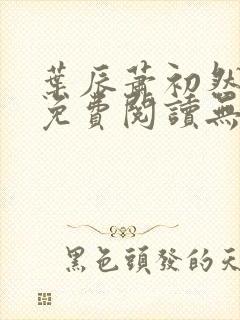 葉辰蕭初然
免費閱讀無
黑色頭發的天